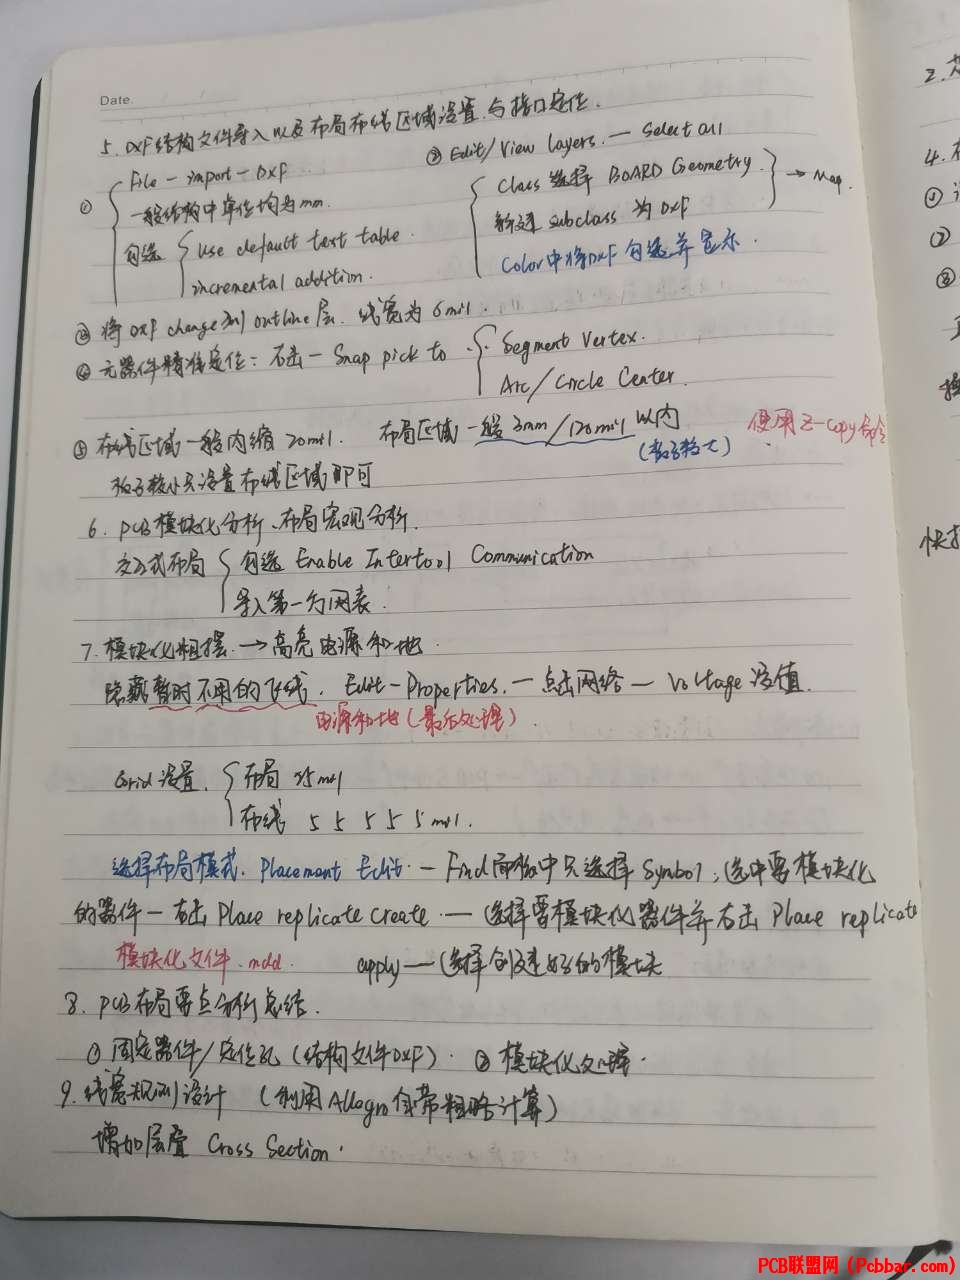 Date.
5. DXF结构文件导入以及布局布线区域设置,与接口定位.
① File - import - DXF
一般结构中单位均为mm.
勾选 use default text table.
incremental addition.
② Edit/View layers. — Select all
Class 选择 BOARD Geometry.
新建 subclass 为 DXF
→ Map.
Color中将DXF勾选并显示.
③ 将DXF change到outline层. 线宽为6mil.
④ 元器件精准定位: 右击 — Snap pick to
Segment Vertex.
Arc/Circle Center.
⑤ 布线区域一般内缩20mil. 布局区域一般3mm/120mil以内
(板子较大)
使用Z-Copy命令
板子较小只设置布线区域即可
6. PCB模块化分析、布局宏观分析.
交互式布局 勾选 Enable Intertool Communication
导入第一方网表.
7. 模块化粗摆. → 高亮电源和地.
隐藏暂时不用的飞线. Edit - Properties. — 点击网络 — Voltage 设值.
电源和地(最后处理).
Grid设置. 布局 25mil
布线 5 5 5 5 5mil.
选择布局模式. Placement Edit. — Find面板中只选择Symbol, 选中要模块化
的器件 — 右击 Place replicate create. — 选择要模块化器件并右击 Place replicate
模块化文件 .mdd.
apply — 选择创建好的模块
8. PCB布局要点分析总结.
① 固定器件/定位孔(结构文件DXF). ② 模块化处理.
9. 线宽规则设计 (利用Allegro自带粗略计算)
增加层叠 Cross Section.
2.
4.
①
②
③
快捷
PCB联盟网 (Pcbbar.com)